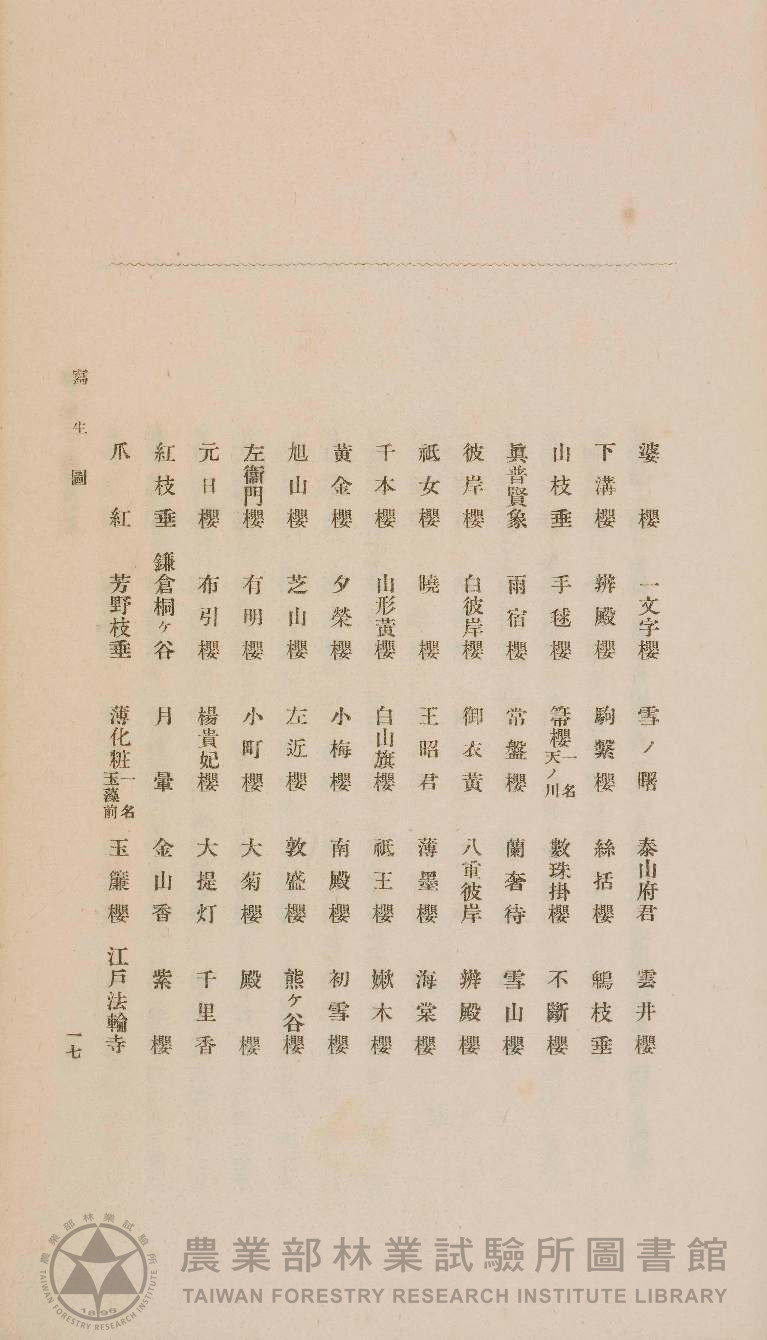 婆櫻 一文字櫻 雪ノ曙 泰山府君 雲井櫻
下溝櫻 辨殿櫻 駒繫櫻 絲括櫻 鵯枝垂
山枝垂 手毬櫻 箒櫻一名天ノ川 數珠掛櫻 不斷櫻
眞普賢象 雨宿櫻 常盤櫻 蘭奢待 雪山櫻
彼岸櫻 白彼岸櫻 御衣黃 八重彼岸 辨殿櫻
祇女櫻 曉櫻 王昭君 薄墨櫻 海棠櫻
千本櫻 山形黃櫻 白山旗櫻 祇王櫻 楸木櫻
黃金櫻 夕榮櫻 小梅櫻 南殿櫻 初雪櫻
旭山櫻 芝山櫻 左近櫻 敦盛櫻 熊ケ谷櫻
左衞門櫻 有明櫻 小町櫻 大菊櫻 殿櫻
元日櫻 布引櫻 楊貴妃櫻 大提灯 千里香
紅枝垂 鎌倉桐ヶ谷 月暈 金山香 紫櫻
爪紅 芳野枝垂 薄化粧一名玉藻前 玉簾櫻 江戶法輪寺
寫生圖
一七
農業部林業試驗所圖書館
TAIWAN FORESTRY RESEARCH INSTITUTE LIBRARY
農業部林業試驗所
TAIWAN FORESTRY RESEARCH INSTITUTE
1899